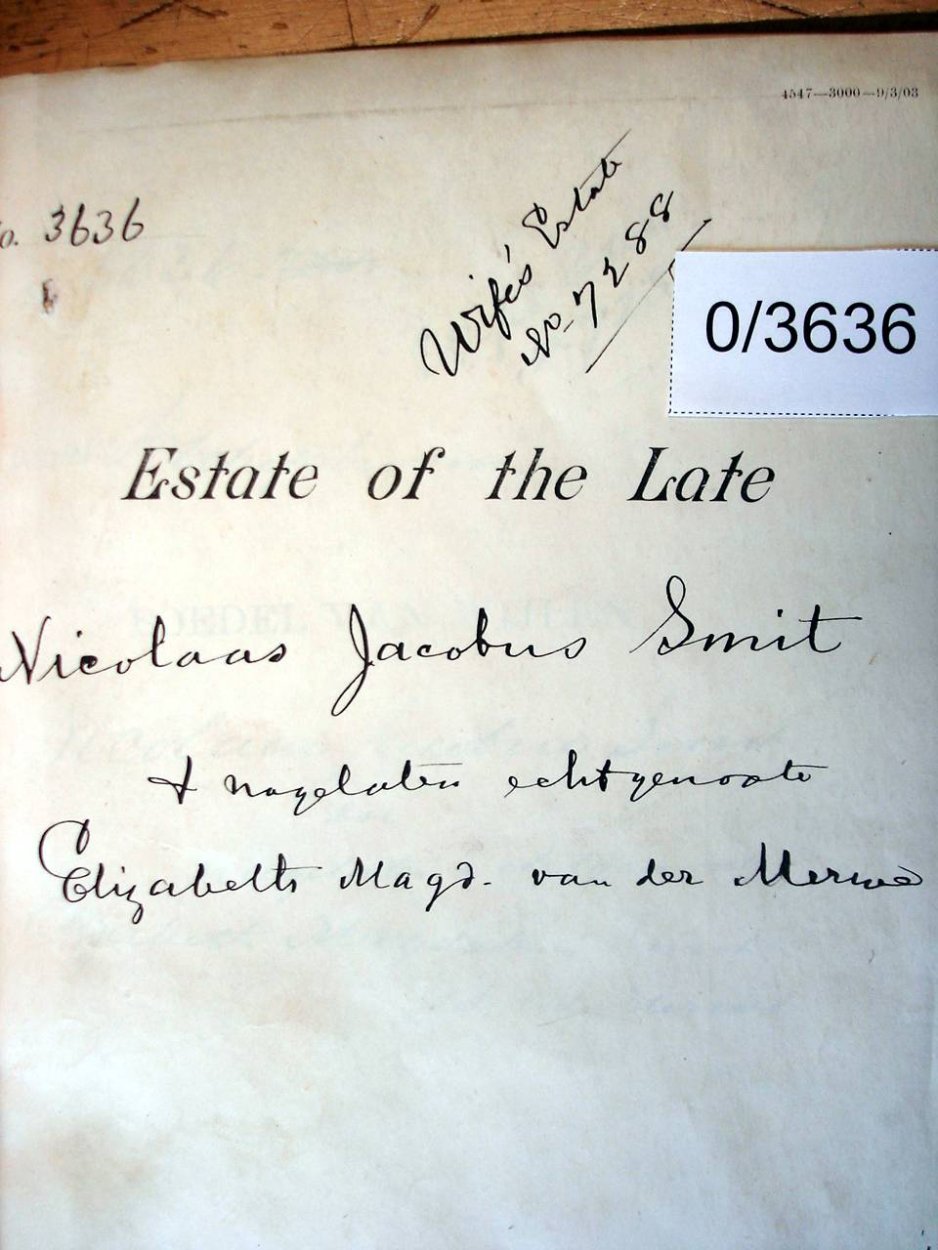 4547—3000—9/3/03
o. 3636
Wife's Estate
No 7288
0/3636
Estate of the Late
Nicolaas Jacobus Smit
& nagelaten echtgenoote
Elizabeth Magd. van der Merwe
BOEDEL VAN WIJLEN